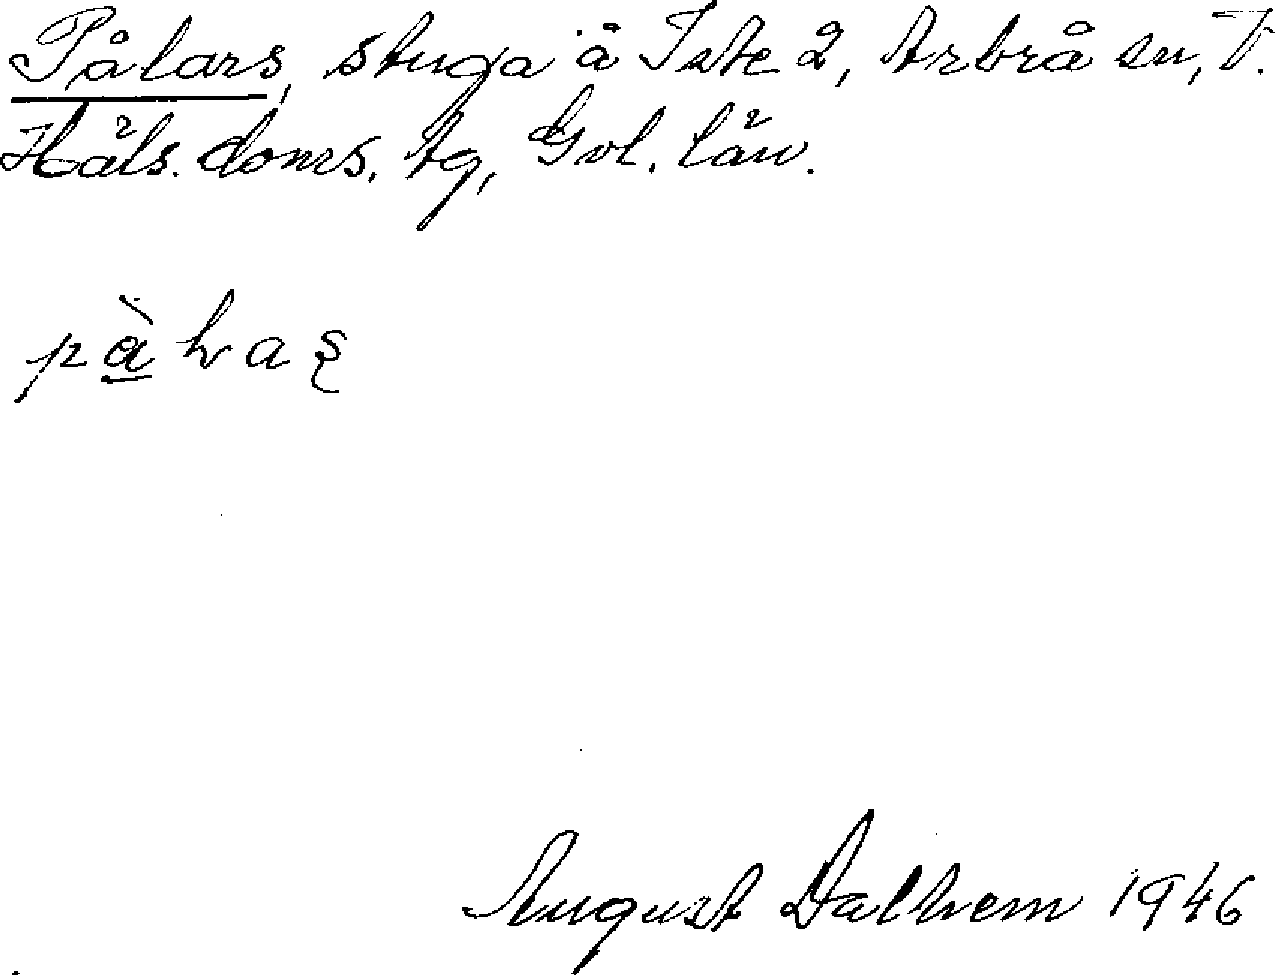 Pålars, stuga å Iste 2, Arbrå sn, V.
Häls. doms. tg, Gvl. län.
pàlaʂ
August Dalhem 1946